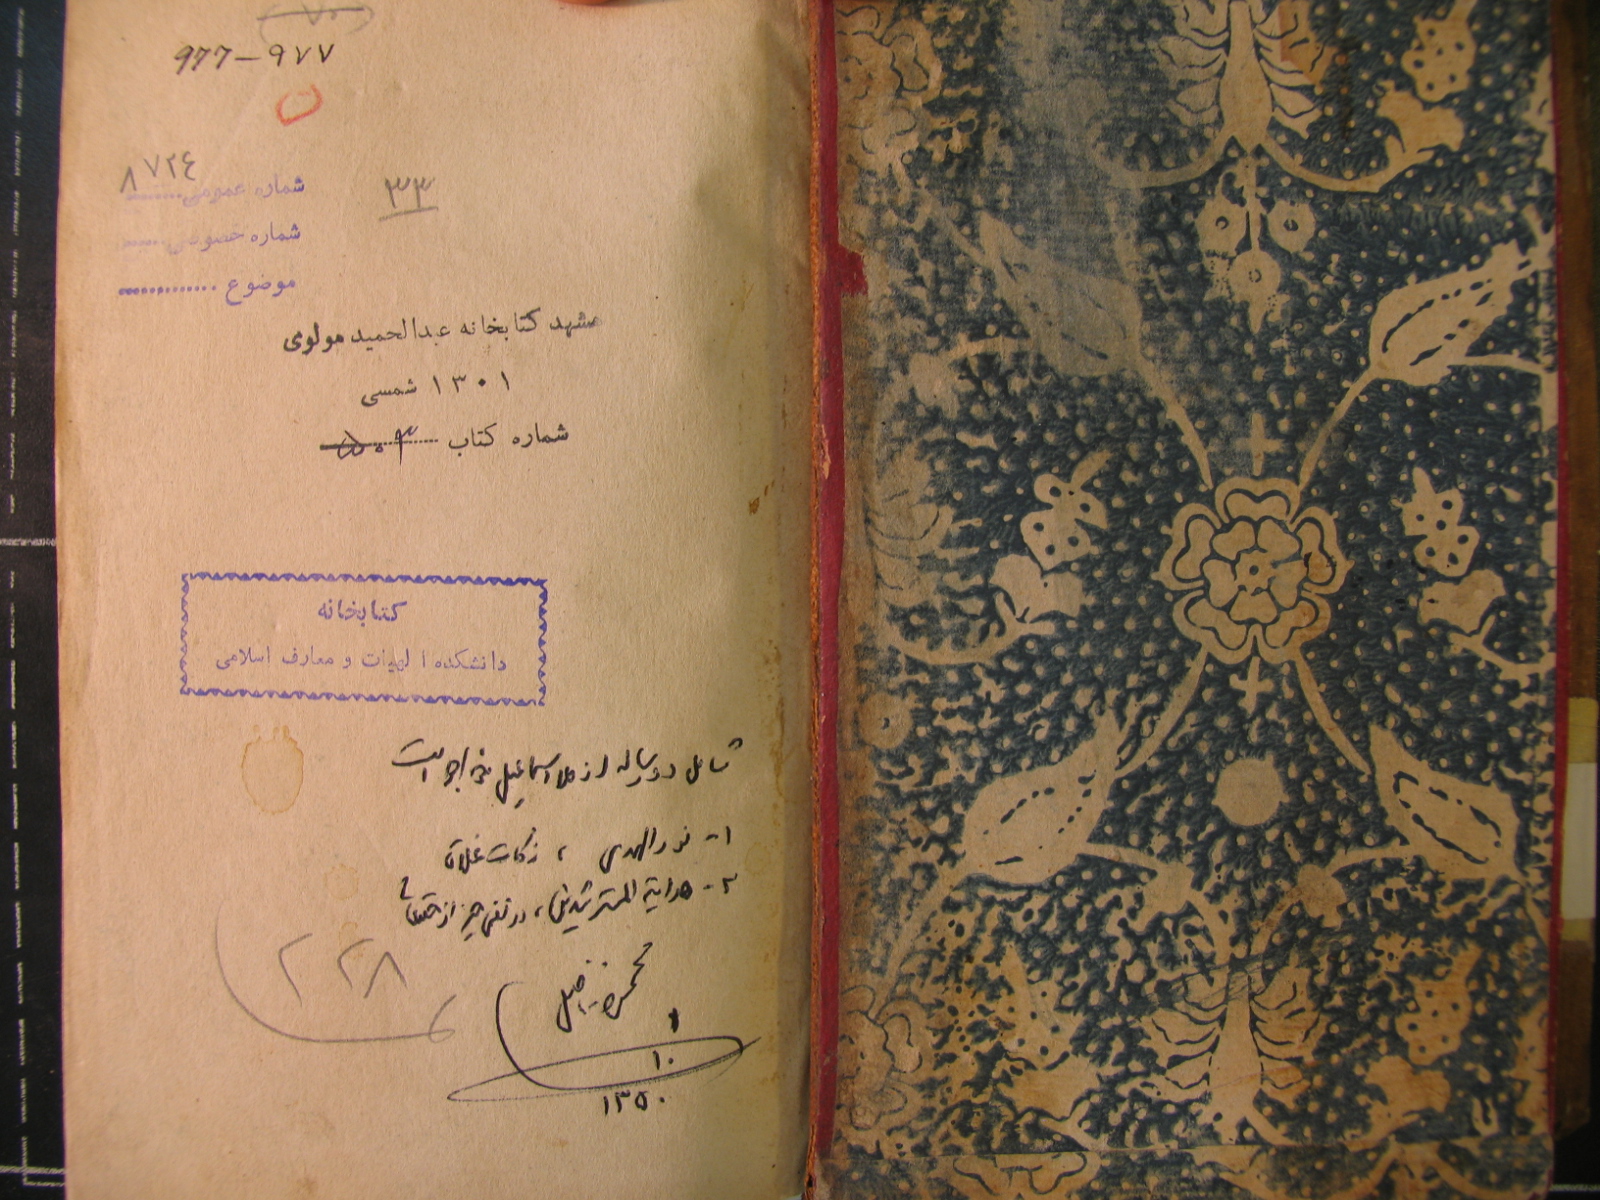 ۹۷۷ - ۹۷۷
شماره عمومی ۸۷۲٤
۳۳
شماره خصوصی
موضوع
مشهد کتابخانه عبدالحمید مولوی
۱۳۰۱ شمسی
شماره کتاب
کتابخانه
دانشکده الهیات و معارف اسلامی
شامل دو رساله از ملا اسماعیل خواجوئی است
۱- نورالهدی ، زکات غلات
۲- هدایة المسترشدین ، در نفی
۲۲۸
محمود فاضل
۱
۱۰
۱۳۵۰